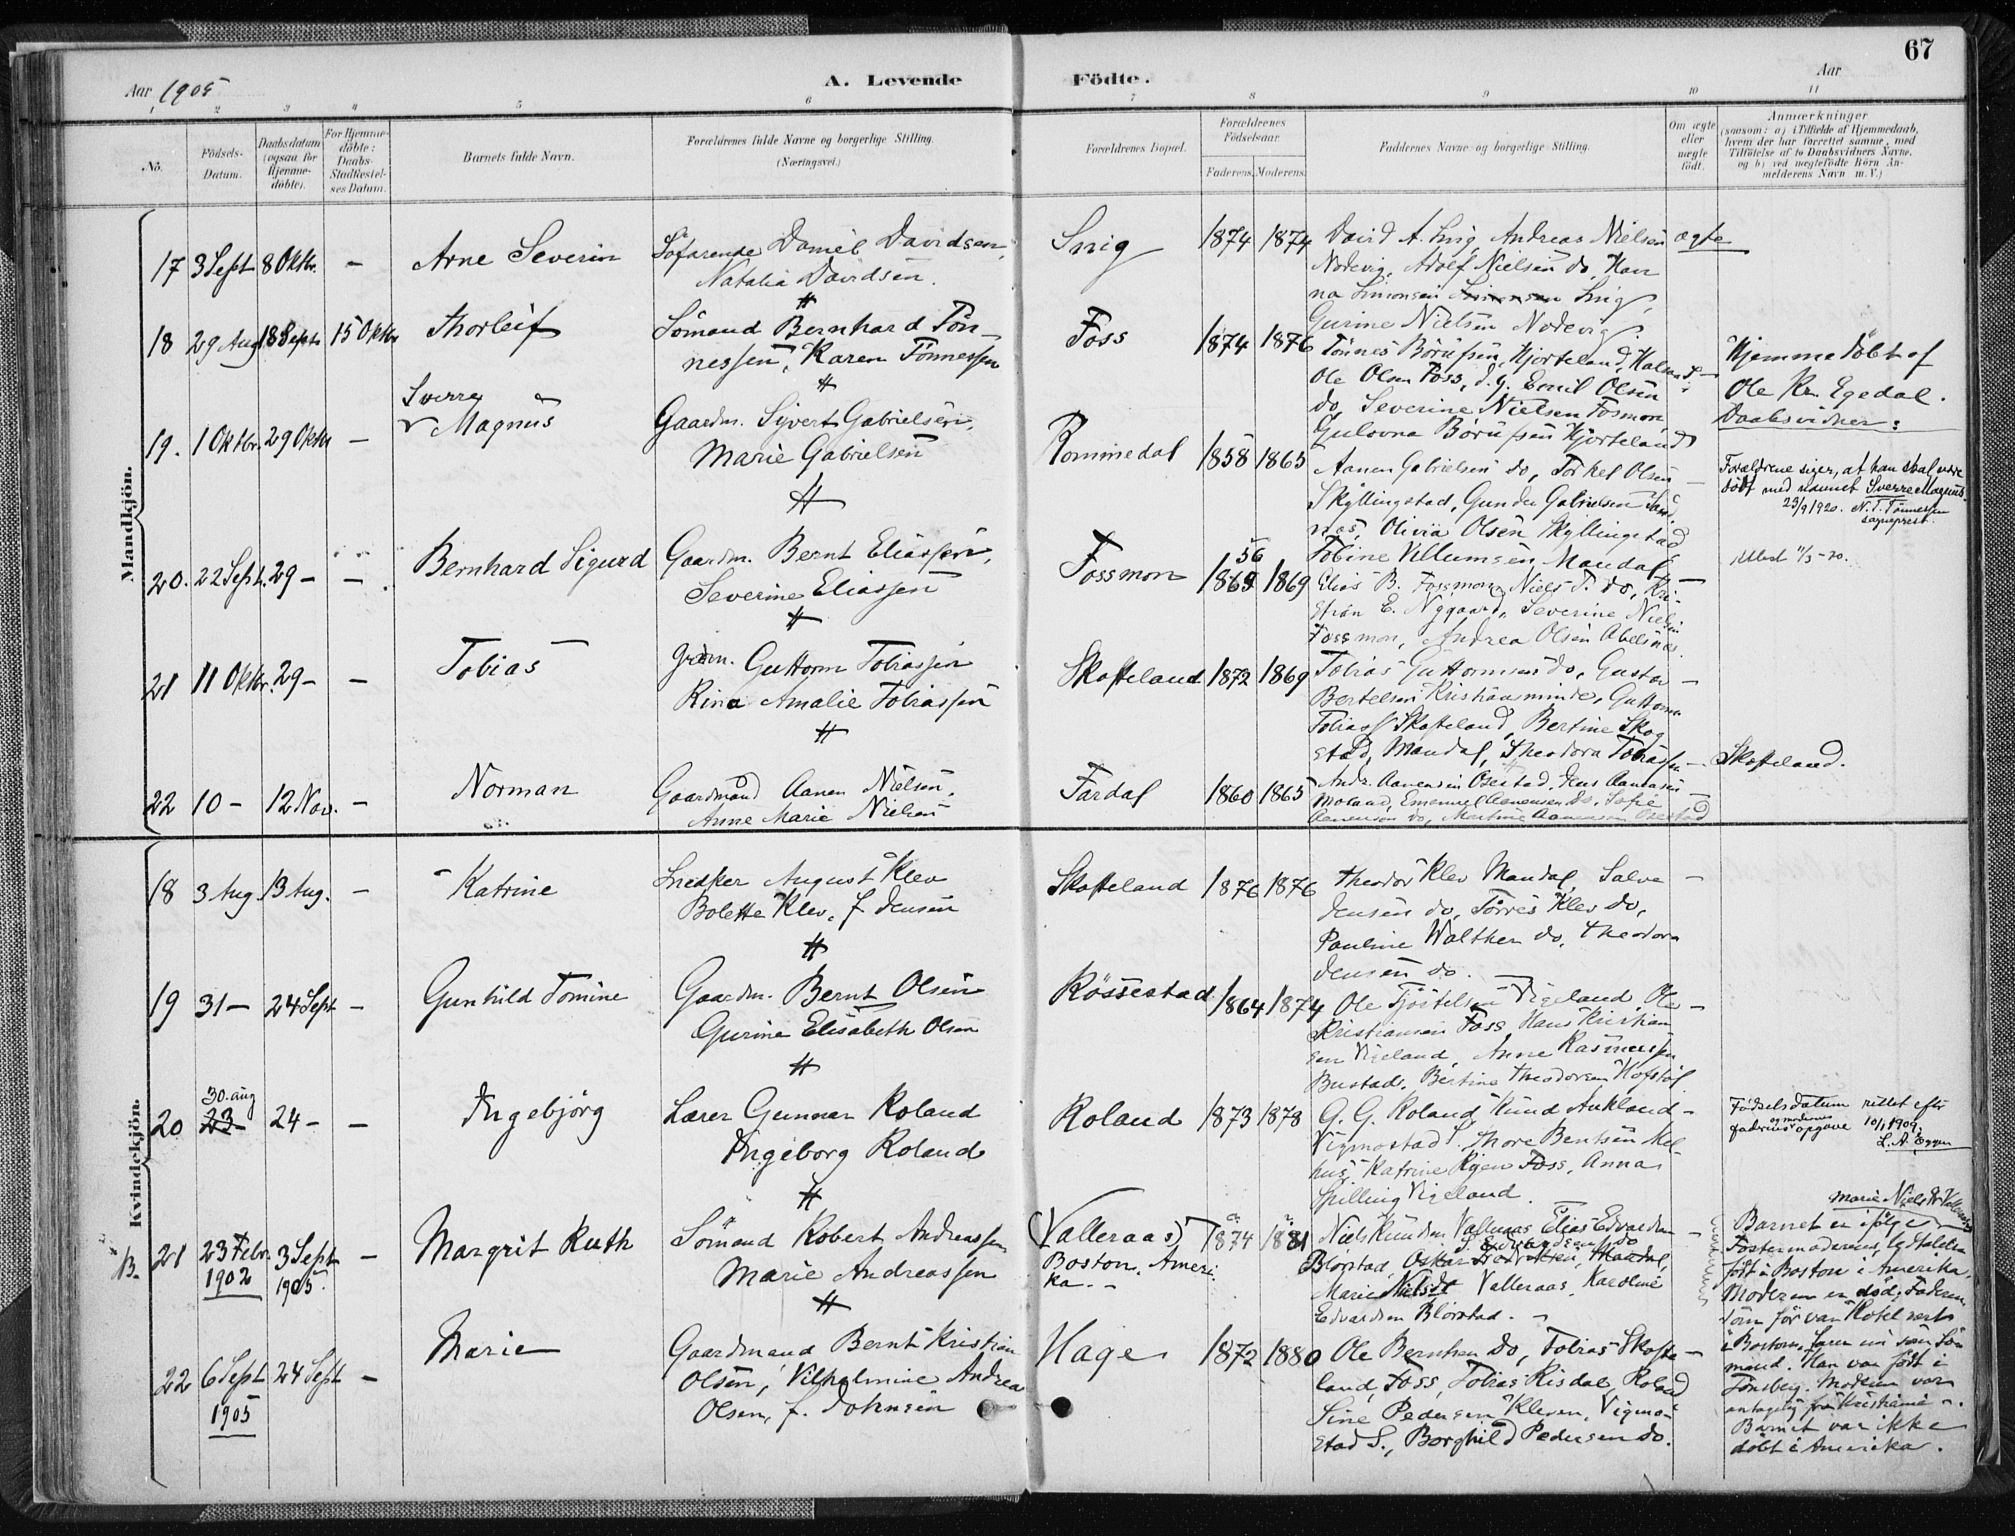 67
Aar 1905
A. Levende Födte.
Aar
1 2 3 4 5 6 7 8 9 10 11
No.
Födsels-
Datum.
Daabsdatum
(ogsaa for
Hjemme-
döbte).
For Hjemme-
döbte:
Daabs-
Stadfæstel-
ses Datum.
Barnets fulde Navn.
Forældrenes fulde Navne og borgerlige Stilling.
(Næringsvei.)
Forældrenes Bopæl.
Forældrenes
Födselsaar.
Faderens. Moderens.
Faddernes Navne og borgerlige Stilling.
Om ægte
eller
uægte
födt.
Anmærkninger
(saasom: a) i Tilfælde af Hjemmedaab,
hvem der har forrettet samme, med
Tilföielse af to Daabsvidners Navne,
og b) ved uægtefödte Börn An-
melderens Navn m. V.)
Mandkjön.
17 3 Sept 8 Oktbr. - Arne Severin
Söfarende Daniel Davidsen,
Natalia Davidsen.
Snig 1874 1874
David A. Snig, Andreas Nielsen
Nodevig, Adolf Nielsen do, Han
na Simonsen Snig,
Gurine Nielsen Nodevig
ægte
18 29 Aug 18 Sept. 15 Oktbr Thorleif
Sömand Bernhard Tön-
nessen, Karen Tönnessen
Foss 1874 1876
Tönnes Börufsen, Hjorteland,
Ole Olsen Foss, d.y. Emil Olsen
do, Severine Nielsen Fosmon
Gulovna Börufsen Hjorteland
Hjemmedöbt af
Ole Kr. Egedal.
Daabsvidner:
19. 1 Oktbr. 29 Oktbr -
Sverre
Magnus
Gaardm. Sivert Gabrielsen,
Marie Gabrielsen
Rommedal 1858 1865
Aanen Gabrielsen do, Torkel Olsen
Skyllingstad, Gunder Gabrielsen
Olivia Olsen Skyllingstad
Tobine Villumsen Mandal
Forældrene siger, at han skal være
döbt med navnet Sverre Magnus.
23/9 1920. N. T. Tönnessen
sogneprest.
20. 22 Sept. 29 - - Bernhard Sigurd
Gaardm. Bernt Eliassen,
Severine Eliassen
Fossmon 56 1869 1869
Elias B. Fossmon, Niels T. do, Kri-
stian E. Nygaard, Severine Nielsen
Fossmon, Andrea Olsen Abelsnes.
21 11 Oktbr. 29 - - Tobias
Grdm. Guttorm Tobiassen
Rina Amalie Tobiassen
Skofteland 1872 1869
Tobias Guttormsen do, Gustav
Bertelsen Kristiansminde, Guttorm
Tobiass. Skofteland, Bertine Skog
stad, Mandal, Theodora Tobiassen - Skofteland.
22 10 - 12 Nov. - Norman
Gaardmand Aanen Nielsen,
Anne Marie Nielsen
Fardal 1860 1865
Andr. Aanensen Osestad, Jens Aanensen
Moland, Emanuel Aanensen do, Sofie
Aanensen do, Martine Aanensen Osestad
Kvindekjön.
18 3 Aug. 13 Aug. - Katrine
Snedker August Klev
Bolette Klev, f. Jensen
Skofteland 1876 1876
Theodor Klev Mandal, Salve
Jensen do, Törres Klev do,
Pauline Walther do, Theodora
Jensen do.
19 31 - 24 Sept - Gunhild Tomine
Gaardm. Bernt Olsen
Gurine Elisabeth Olsen
Rössestad 1864 1874
Ole Tjöstelsen Vigeland, Ole
Kristiansen Foss, Hans Kristian
sen Vigeland, Anne Rasmussen
Bustad, Bertine Theodorsen Hofstöl
20 30. aug 23 - 24 - - Ingebjörg
Lærer Gunnar Roland
Ingeborg Roland
Roland 1873 1878
G. G. Roland, Knud Aukland
Vigmostad S. Thore Bentsen Mel-
hus, Katrine Foss, Anna
Spilling Vigeland.
Födselsdatum rettet efter
faderens og moderens opgave 10/1 1909.
L. A. Eggen
B. 21 23 Febr. 1902 3 Sept. 1905. - Margrit Ruth
Sömand Robert Andreassen
Marie Andreassen
(Valleraas)
Boston, Ameri
ka. -
1874 1881
Niels Knudsen Valleraas, Elias Edvardsen
Blörstad, Oskar Mandal,
Marie Nielsdt Valleraas, Karoline
Edvardsen Blörstad. -
Marie Nielsdtr Valleraas
Barnet er ifölge
Fostermoderens Udtalelse
födt i Boston i Amerika.
Moderen er död; Faderen,
som för var Hotelvært
i Boston, farer nu som Sö-
mand. Han var födt i
Tönsberg. Moderen var
antagelig fra Kristiania.
Barnet var ikke
döbt i Amerika.
22 6 Sept 1905 24 Sept - Marie
Gaardmand Bernt Kristian
Olsen, Vilhelmine Andrea
Olsen, f. Johnsen
Hage 1872 1880
Ole Berntsen do, Tobias Skofte-
land, Foss, Tobias Risdal, Roland
Sine Pedersen Kleven, Vigmo-
stad S., Borghild Pedersen do.